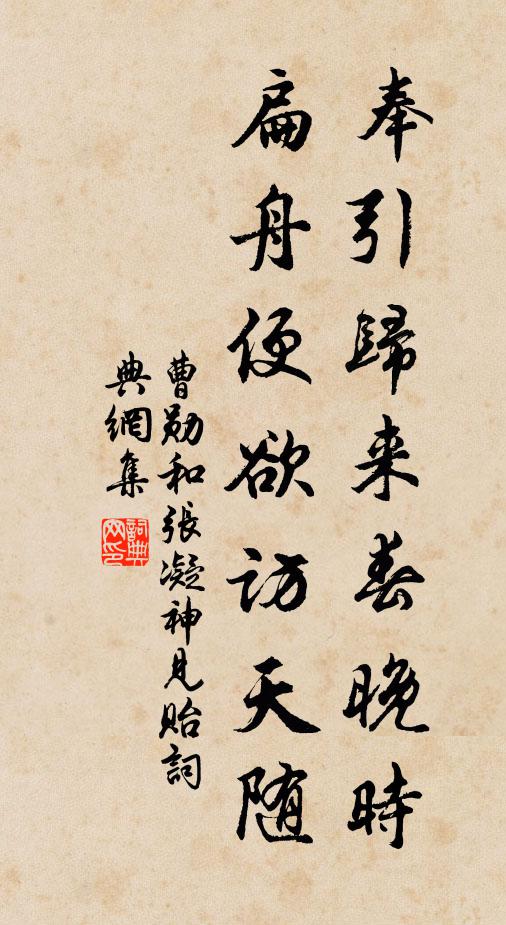 奉引歸来春晚時
扁舟便欲訪天随
曹勛和張凝神見貽詞
典網集
詞典網印